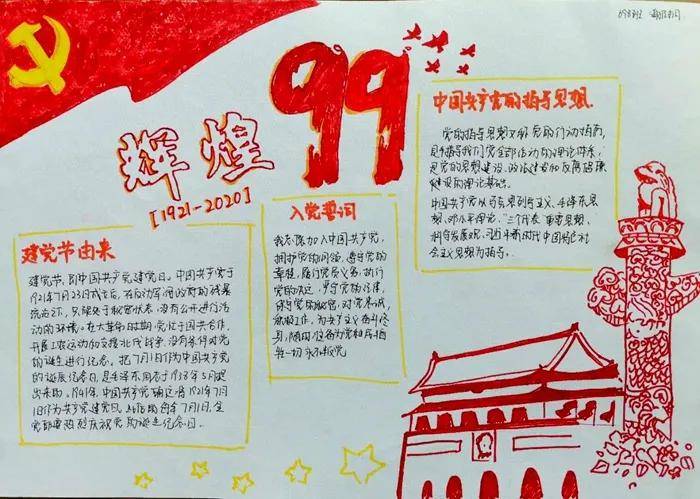 99
辉煌
[1921-2020]
建党节由来
建党节,即中国共产党建党日。中国共产党于
1921年7月23日成立后,在反动军阀政府的残暴
统治下,只能处于秘密状态,没有公开进行活
动的环境。在大革命时期,党忙于国共合作、
开展工农运动和支援北伐战争,没有条件对党
的诞生进行纪念。把7月1日作为中国共产党
的诞辰纪念日,是毛泽东同志于1938年5月提
出来的。1941年,中国共产党确定将1921年7月
1日作为共产党建党日。
党都要热烈庆祝党的诞生纪念日。
入党誓词
我志愿加入中国共产党,
拥护党的纲领,遵守党的
章程,履行党员义务,执行
党的决定,严守党的纪律,
保守党的秘密,对党忠诚,
积极工作,为共产主义奋斗终
身,随时准备为党和人民牺牲
一切,永不叛党
中国共产党的指导思想
党的指导思想又称党的行动指南,
是指导我们党全部活动的理论体系,
是党的思想建设、政治建设和
建设的理论基础。
中国共产党以马克思列宁主义、毛泽东思
想、邓小平理论、"三个代表"重要思想、
科学发展观、习近平新时代中国特色社
会主义思想为指导。